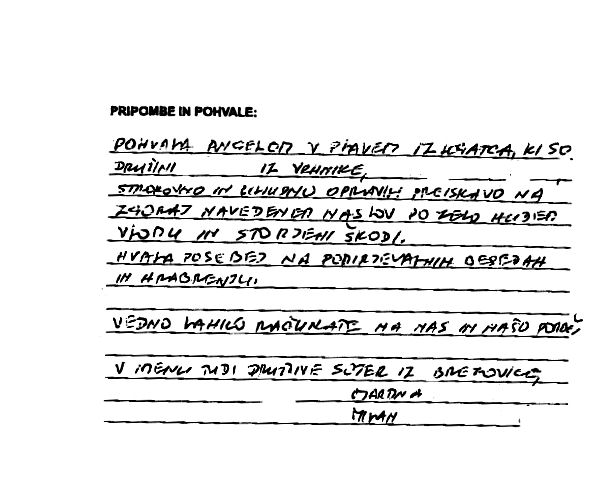 PRIPOMBE IN POHVALE:
POHVALA ANGELOM V PLAVEM IZ HŠATCA, KI SO
DRUŽINI IZ VRHNIKE,
STROKOVNO IN OPRAVILI PREISKAVO NA
ZGORAJ NAVEDENEM NASLOV PO ZELO HUDEM
VLOMU IN STORJENI ŠKODI.
HVALA POSEBEJ NA BESEDAH
IN HRABRENJU.
VEDNO LAHKO RAČUNATE NA NAS IN NAŠO POMOČ,
V IMENU TUDI DRUŽINE IZ BREZOVICE,
MARTINA
MILAN